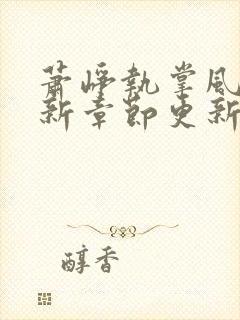 萧峥执掌风
新章节更新
醇香